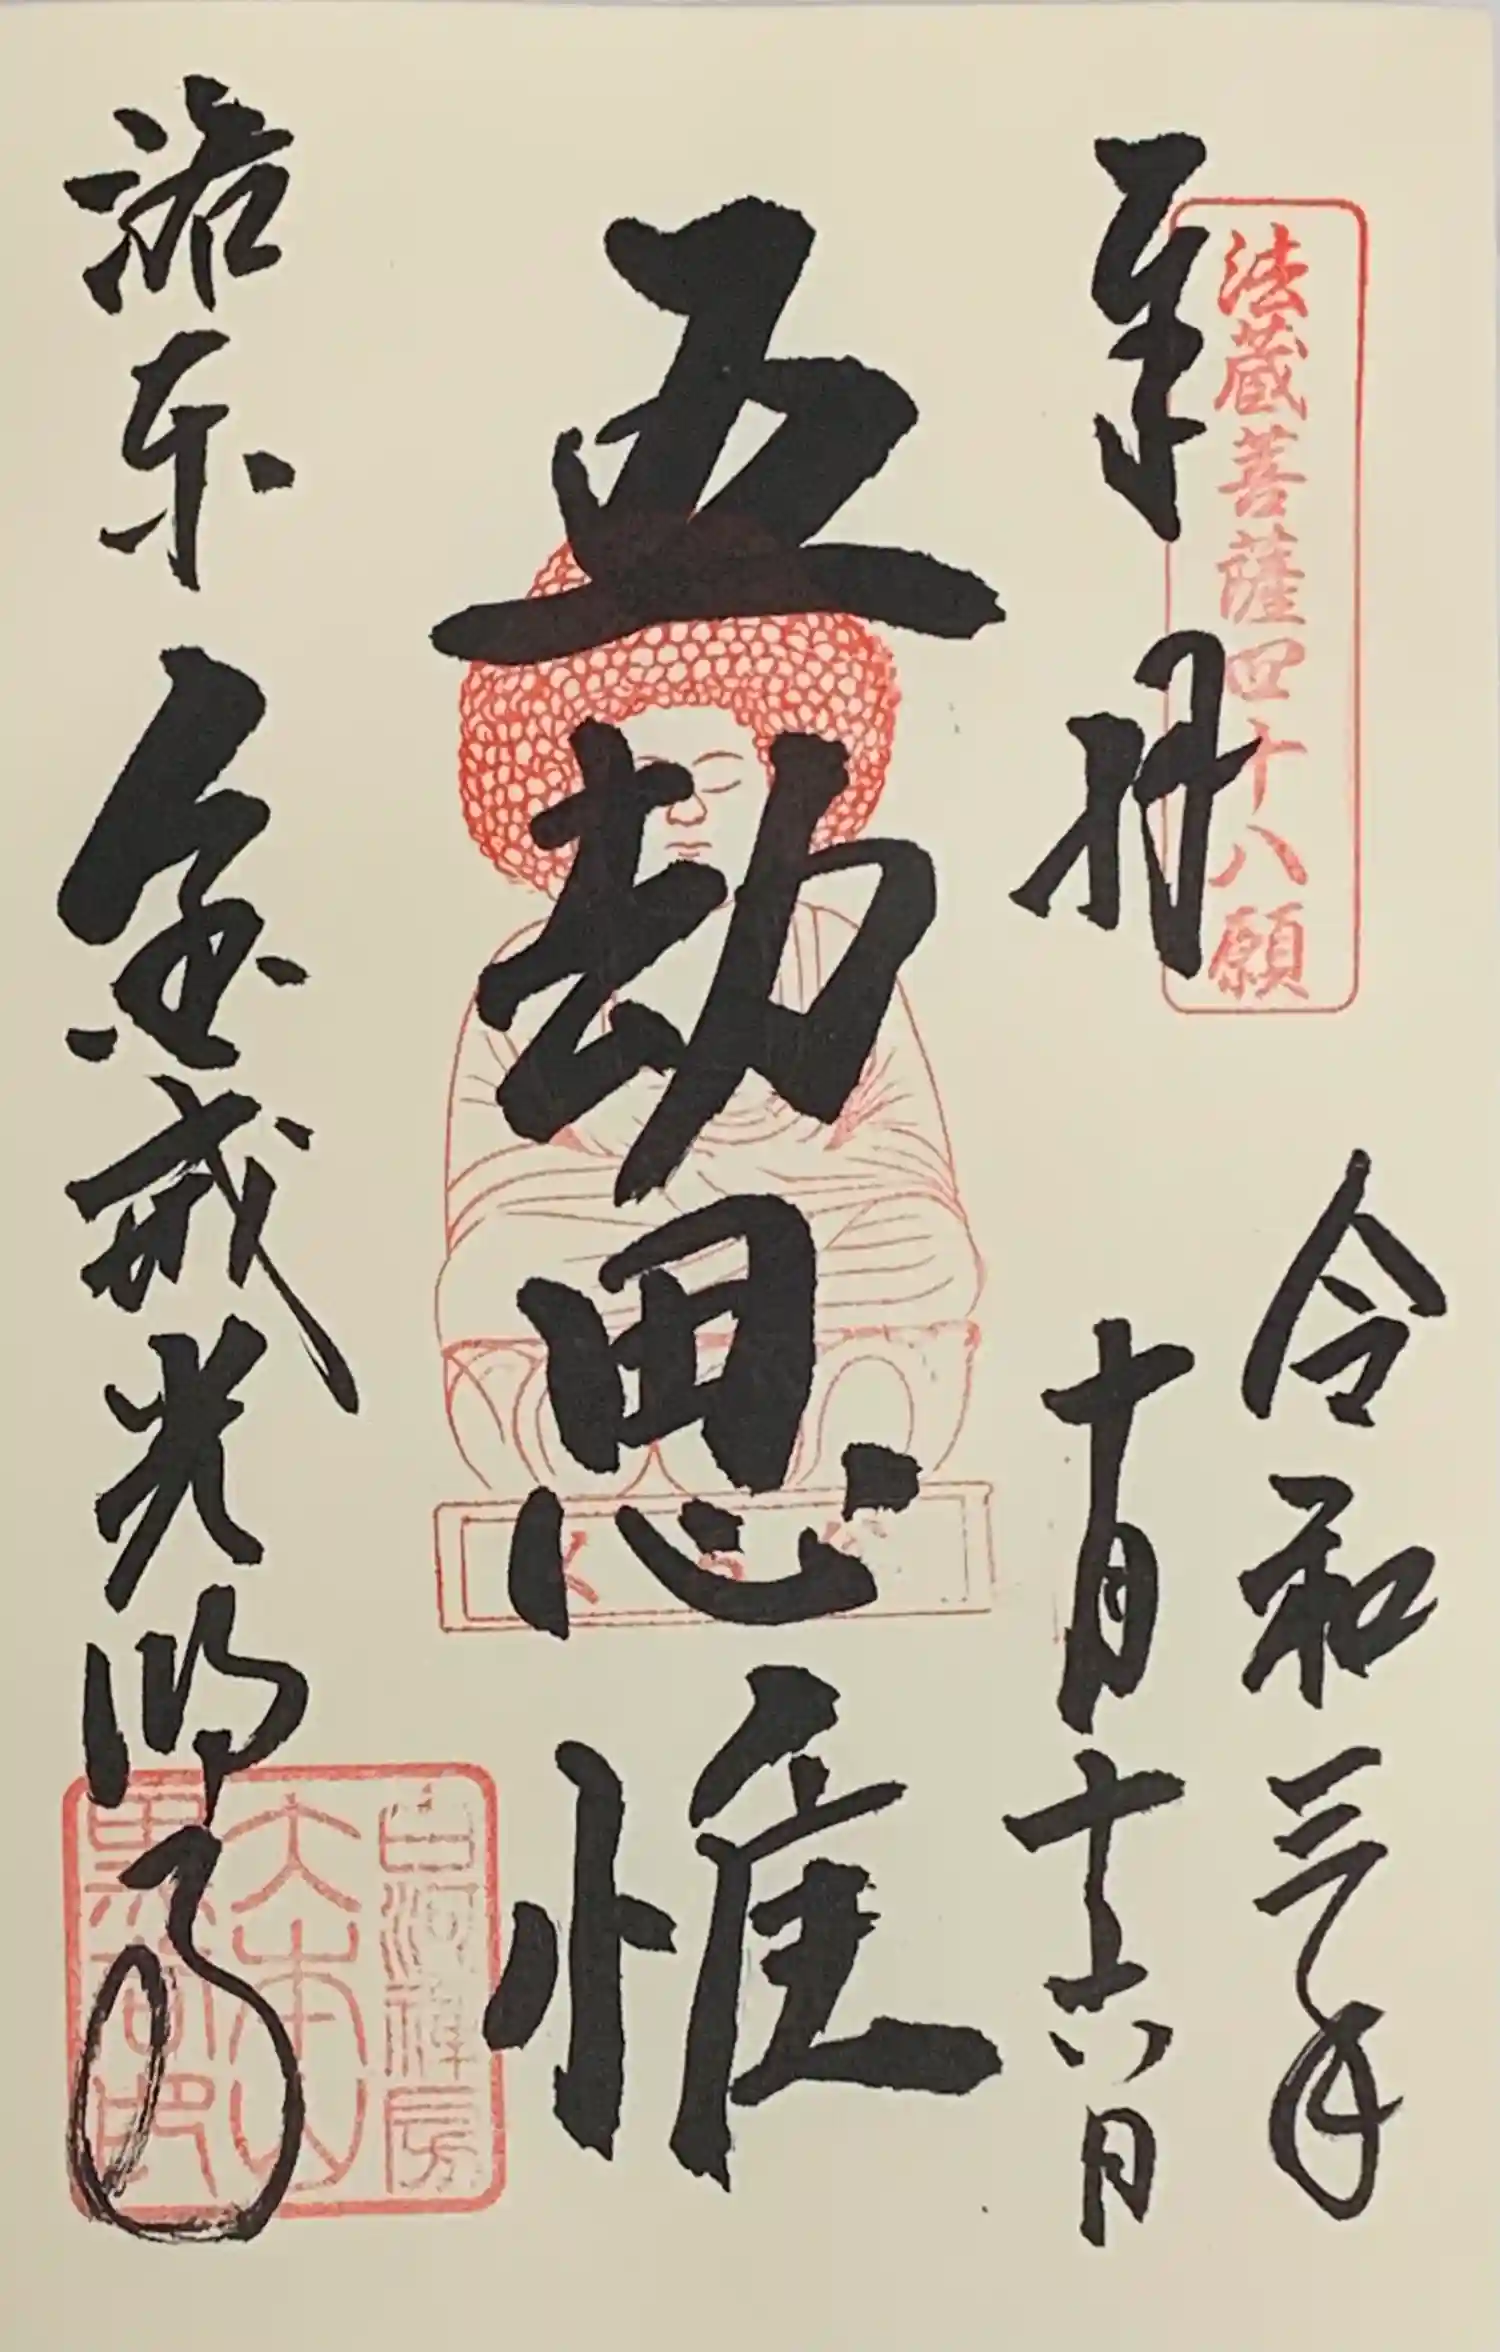 法蔵菩薩四十八願
奉拝
令和三年
十月十六日
五劫思惟
洛東 金戒光明寺
白河禅房
大本山
黒谷印